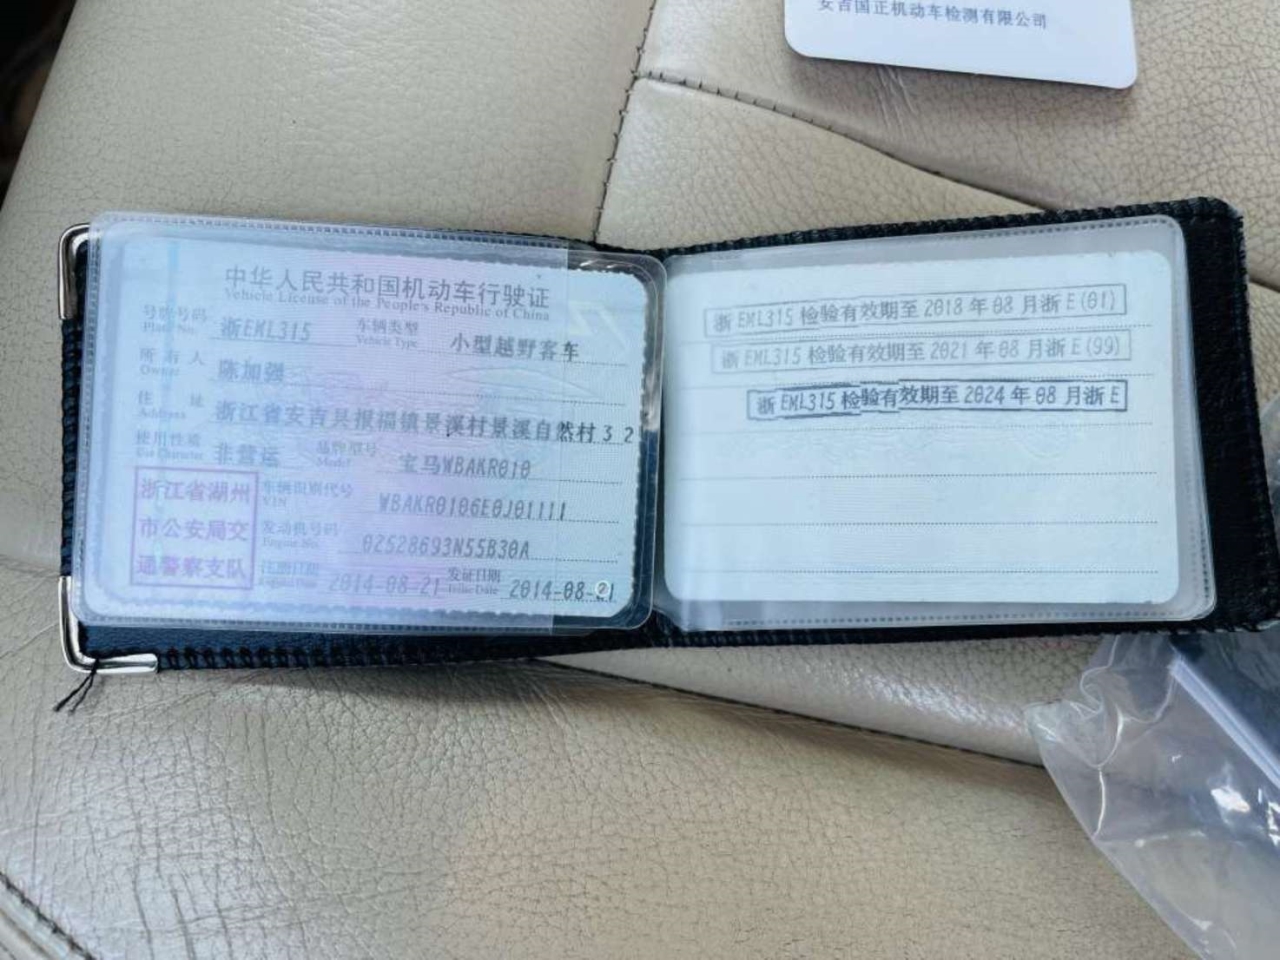 安吉国正机动车检测有限公司
中华人民共和国机动车行驶证
Vehicle License of the People's Republic of China
号牌号码 浙EML315 车辆类型 小型越野客车
Plate No. Vehicle Type
所有人 陈加强
Owner
住址 浙江省安吉县报福镇景溪村景溪自然村32
Address
使用性质 非营运 品牌型号 宝马WBAKR010
Use Character Model
浙江省湖州
市公安局交
通警察支队
车辆识别代号 WBAKR0106E0J01111
VIN
发动机号码 02528693N55B30A
Engine No.
注册日期 2014-08-21 发证日期 2014-08-21
Register Date Issue Date
浙EML315 检验有效期至2018年08月浙E(01)
浙EML315 检验有效期至2021年08月浙E(99)
浙EML315 检验有效期至2024年08月浙E